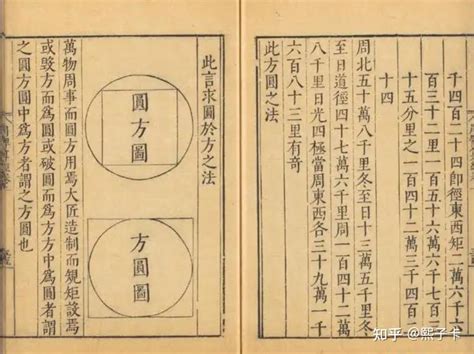 千四百二十四卽徑東西矩二百
百三十二里一百五十六萬六千七百
十五分里之一百
十四
周北五十萬八千里冬至日十三萬五千里冬
至日道徑四十七萬六千里周一百四十二萬
八千里日光四極當周東西各三十九萬一千
六百八十三里有奇
此方圓之法
此言求圓於方之法
圓方圖
方圓圖
萬物周事而圓方用焉大匠造制而規矩設焉
或毀方而為圓或破圓而為方方中為圓者謂
之圓方圓中為方者謂之方圓也
知乎 @熙子卡